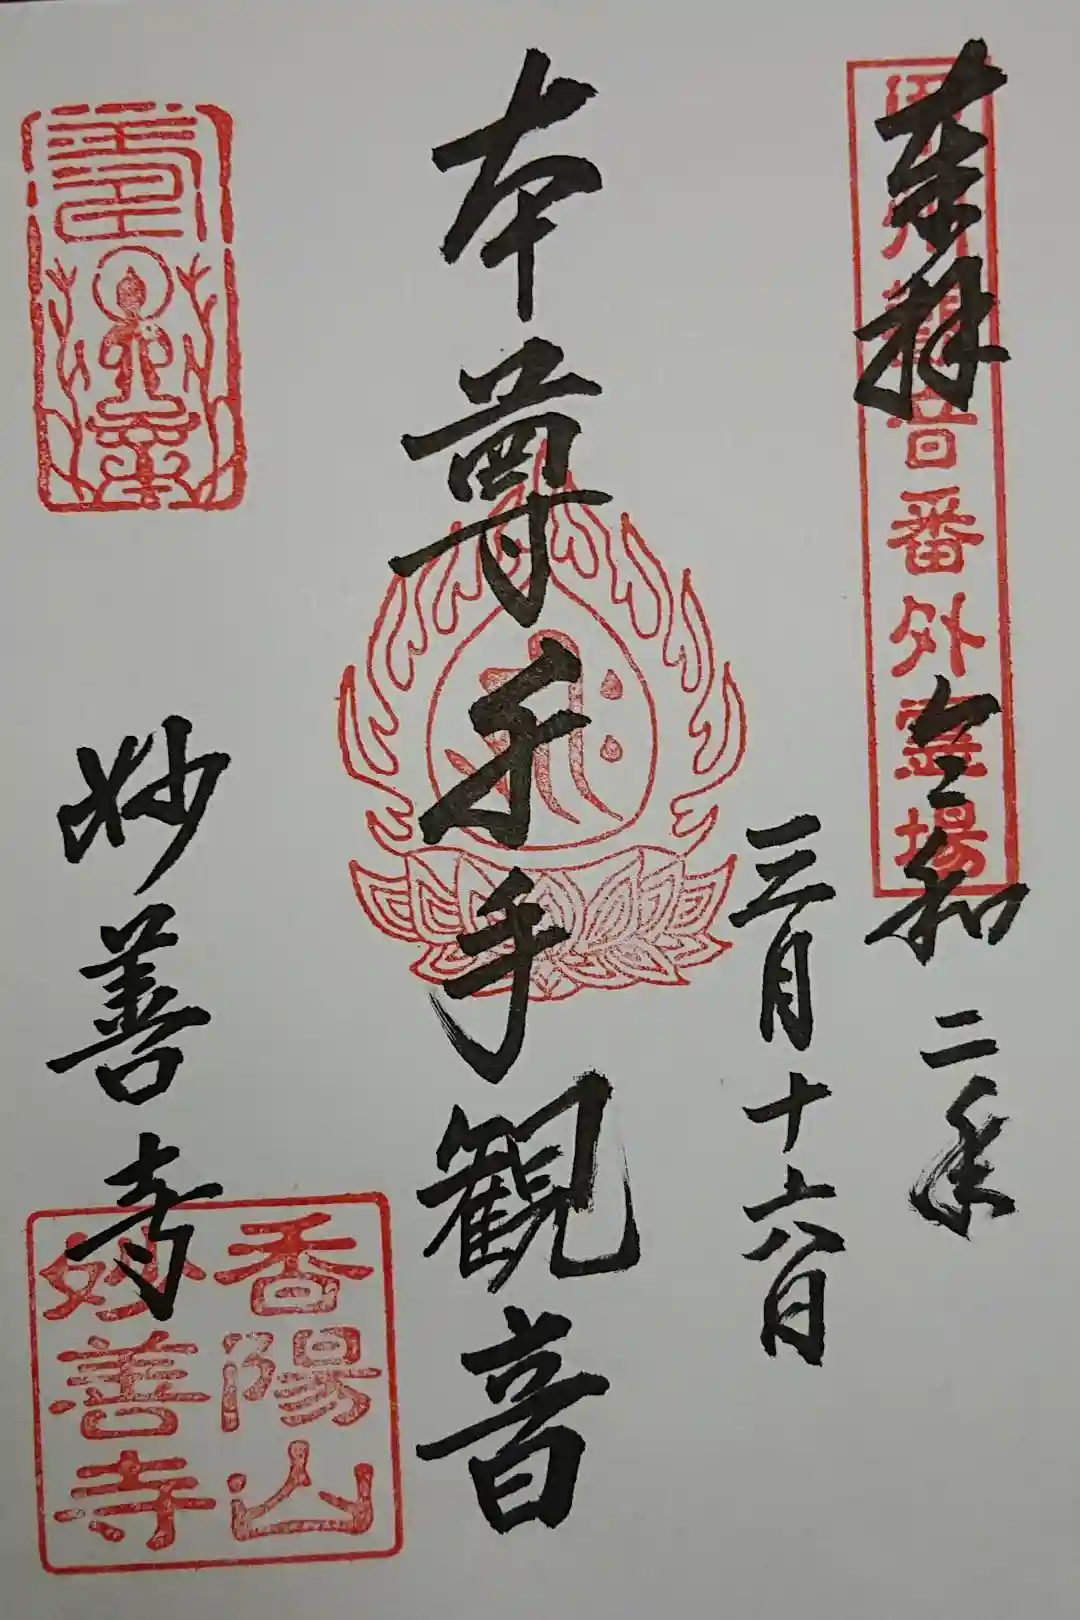 奉拝
観音番外霊場
令和二年
三月十六日
本尊千手観音
妙善寺
香陽山
妙善寺